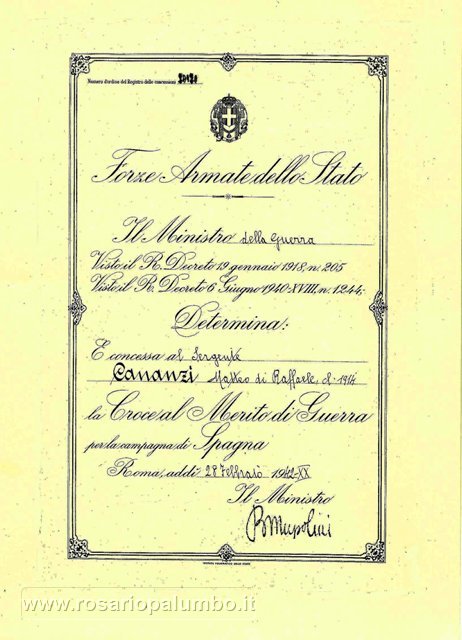 Numero d'ordine del Registro delle concessioni
Forze Armate dello Stato
Il Ministro della Guerra
Visto il R. Decreto 19 gennaio 1918, n. 205
Visto il R. Decreto 6 Giugno 1940-XVIII, n. 1244;
Determina:
È concessa al Sergente
Cananzi Matteo di Raffaele, cl. 1914
la Croce al Merito di Guerra
per la campagna di Spagna
Roma, addì 28 Febbraio 1942-XX
Il Ministro
BMussolini
www.rosariopalumbo.it